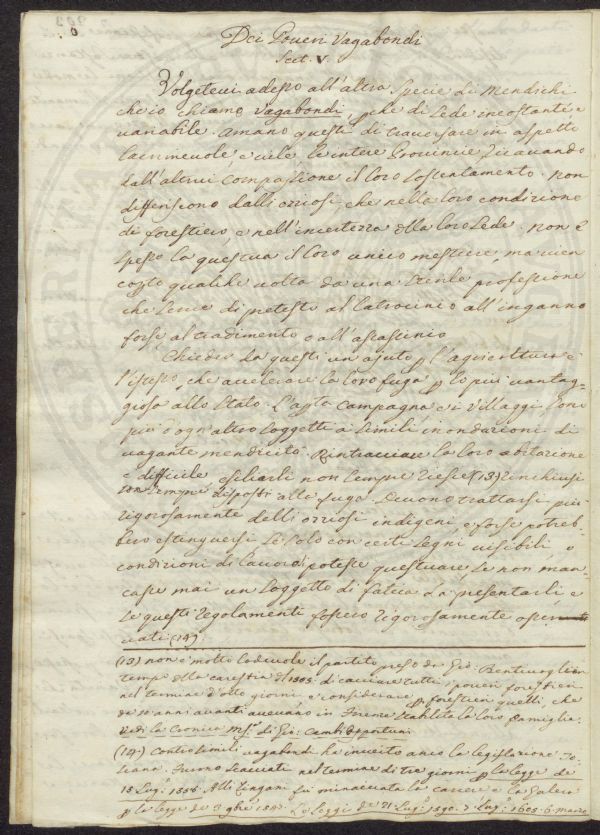 Dei Poveri Vagabondi
Sect. V.
Volgetevi adesso all'altra Specie di Mendichi
che io chiamo vagabondi, pche di Sede incostante e
variabile. amano questi di traversare in aspetto
lacrimevole, e vile le intere Provincie ricavando
dall'altrui Compassione il loro Sostentamento. Non
differiscono dalli oziosi che nella loro condizione
di forestiero, e nell'incertezza della loro Sede. Non è
spesso la questua il loro unico mestiere, ma vien
copto qualche volta da una Servile professione
che Serve di pretesto al latrocinio all'inganno
forse al tradimento o all'assassinio
Chieder da questi un ajuto p l'agricoltura è
l'istesso, che accelerare la loro fuga p lo più vantag=
giosa allo Stato. L'apta Campagna e i Villaggi, Sono
più d'ogn'altro Soggetti a Simili inondazioni di
vagante mendicità. Rintracciare la loro abitazione
è difficile esiliarli non Sempre riesce (13) rinchiusi
son Sempre disposti alla fuga. Devono trattarsi più
rigorosamente delli oziosi indigeni, e forse potreb=
bero estinguersi Se Solo con certi Segni visibili, o
condizioni di lavoro potesse questuare, Se non man=
casse mai un Soggetto di fatica da presentarli, e
Se questi regolamenti fossero rigorosamente osser
vati (14).
(13) Non è molto lodevole il partito preso da Gio. Bentivoglio in
tempo della carestia del 1505. di cacciare tutti i poveri forestieri
nel termine d'otto giorni e considerare p forestieri quelli, che
da 10 anni avanti avevano in Firenze stabilita la loro famiglia.
Vedi la Cronica MS. di Gio: Cambi
(14) Contro Simili vagabondi ha inveito anco la legislazione To=
scana. Furno scacciati nel termine di tre giorni p la legge de
15 Lug.o 1556. Alli Zingani fu minacciata la carcere e la Galera
p la legge de 3 9bre 1547. Le Leggi de 21 Lug.o 1590. 7 Lug.o 1603. 6 marzo